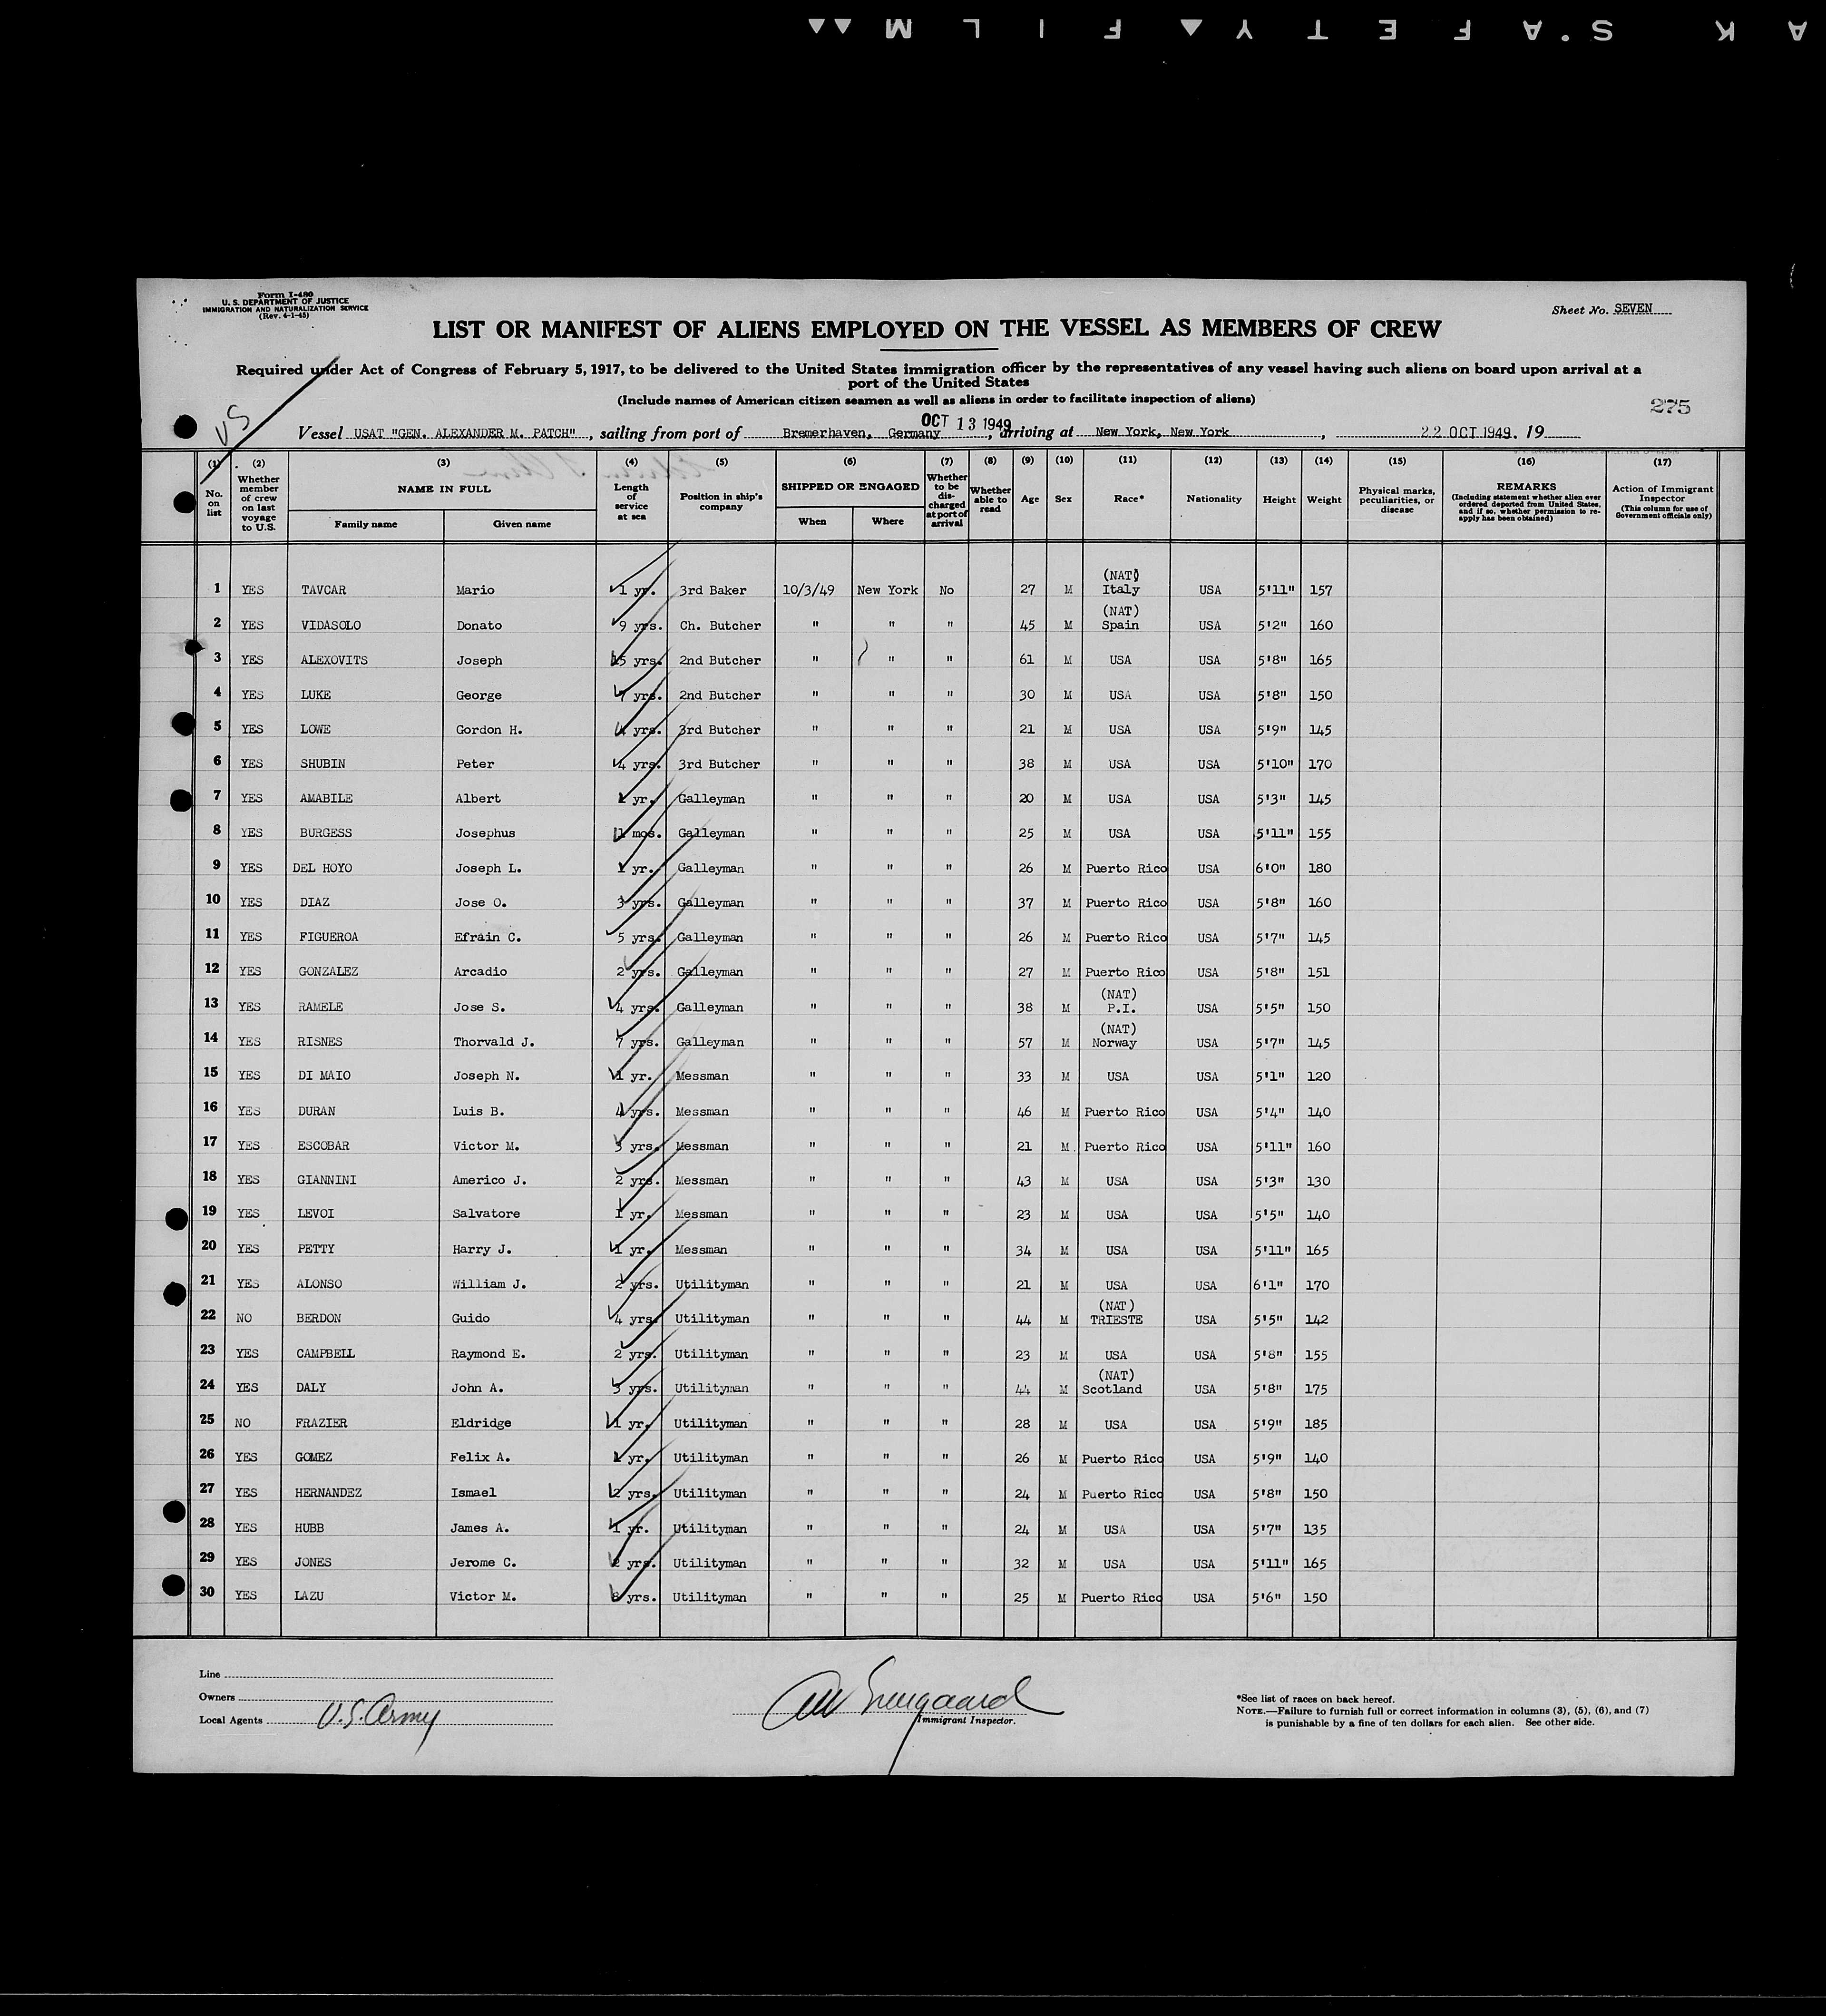 A K S.A F E T Y ▲ F I L M ▲▲
Form I-480
U. S. DEPARTMENT OF JUSTICE
IMMIGRATION AND NATURALIZATION SERVICE
(Rev. 4-1-45)
Sheet No. SEVEN
LIST OR MANIFEST OF ALIENS EMPLOYED ON THE VESSEL AS MEMBERS OF CREW
Required under Act of Congress of February 5, 1917, to be delivered to the United States immigration officer by the representatives of any vessel having such aliens on board upon arrival at a
port of the United States
(Include names of American citizen seamen as well as aliens in order to facilitate inspection of aliens)
275
US
Vessel USAT "GEN. ALEXANDER M. PATCH", sailing from port of Bremerhaven, Germany OCT 13 1949, arriving at New York, New York, 22 OCT 1949. 19
(1) (2) (3) (4) (5) (6) (7) (8) (9) (10) (11) (12) (13) (14) (15) (16) (17)
No. on list
Whether member of crew on last voyage to U.S.
NAME IN FULL
Family name Given name
Length of service at sea
Position in ship's company
SHIPPED OR ENGAGED
When Where
Whether to be discharged at port of arrival
Whether able to read
Age
Sex
Race*
Nationality
Height
Weight
Physical marks, peculiarities, or disease
REMARKS
(Including statement whether alien ever ordered deported from United States, and if so, whether permission to re-apply has been obtained)
Action of Immigrant Inspector
(This column for use of Government officials only)
1 YES TAVCAR Mario 1 yr. 3rd Baker 10/3/49 New York No 27 M (NAT) Italy USA 5'11" 157
2 YES VIDASOLO Donato 9 yrs. Ch. Butcher " " " 45 M (NAT) Spain USA 5'2" 160
3 YES ALEXOVITS Joseph 15 yrs. 2nd Butcher " " " 61 M USA USA 5'8" 165
4 YES LUKE George 7 yrs. 2nd Butcher " " " 30 M USA USA 5'8" 150
5 YES LOWE Gordon H. 4 yrs. 3rd Butcher " " " 21 M USA USA 5'9" 145
6 YES SHUBIN Peter 4 yrs. 3rd Butcher " " " 38 M USA USA 5'10" 170
7 YES AMABILE Albert 1 yr. Galleyman " " " 20 M USA USA 5'3" 145
8 YES BURGESS Josephus 11 mos. Galleyman " " " 25 M USA USA 5'11" 155
9 YES DEL HOYO Joseph L. 1 yr. Galleyman " " " 26 M Puerto Rico USA 6'0" 180
10 YES DIAZ Jose O. 3 yrs. Galleyman " " " 37 M Puerto Rico USA 5'8" 160
11 YES FIGUEROA Efrain C. 5 yrs. Galleyman " " " 26 M Puerto Rico USA 5'7" 145
12 YES GONZALEZ Arcadio 2 yrs. Galleyman " " " 27 M Puerto Rico USA 5'8" 151
13 YES RAMELE Jose S. 4 yrs. Galleyman " " " 38 M (NAT) P.I. USA 5'5" 150
14 YES RISNES Thorvald J. 7 yrs. Galleyman " " " 57 M (NAT) Norway USA 5'7" 145
15 YES DI MAIO Joseph N. 1 yr. Messman " " " 33 M USA USA 5'1" 120
16 YES DURAN Luis B. 4 yrs. Messman " " " 46 M Puerto Rico USA 5'4" 140
17 YES ESCOBAR Victor M. 3 yrs. Messman " " " 21 M Puerto Rico USA 5'11" 160
18 YES GIANNINI Americo J. 2 yrs. Messman " " " 43 M USA USA 5'3" 130
19 YES LEVOI Salvatore 1 yr. Messman " " " 23 M USA USA 5'5" 140
20 YES PETTY Harry J. 1 yr. Messman " " " 34 M USA USA 5'11" 165
21 YES ALONSO William J. 2 yrs. Utilityman " " " 21 M USA USA 6'1" 170
22 NO BERDON Guido 4 yrs. Utilityman " " " 44 M (NAT) TRIESTE USA 5'5" 142
23 YES CAMPBELL Raymond E. 2 yrs. Utilityman " " " 23 M USA USA 5'8" 155
24 YES DALY John A. yrs. Utilityman " " " 44 M (NAT) Scotland USA 5'8" 175
25 NO FRAZIER Eldridge 1 yr. Utilityman " " " 28 M USA USA 5'9" 185
26 YES GOMEZ Felix A. 1 yr. Utilityman " " " 26 M Puerto Rico USA 5'9" 140
27 YES HERNANDEZ Ismael 2 yrs. Utilityman " " " 24 M Puerto Rico USA 5'8" 150
28 YES HUBB James A. 1 yr. Utilityman " " " 24 M USA USA 5'7" 135
29 YES JONES Jerome C. 2 yrs. Utilityman " " " 32 M USA USA 5'11" 165
30 YES LAZU Victor M. yrs. Utilityman " " " 25 M Puerto Rico USA 5'6" 150
Line
Owners
Local Agents U.S. Army
Immigrant Inspector.
*See list of races on back hereof.
NOTE.—Failure to furnish full or correct information in columns (3), (5), (6), and (7)
is punishable by a fine of ten dollars for each alien. See other side.